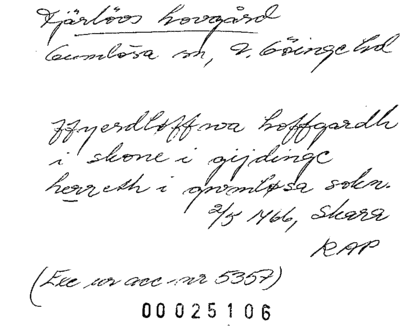 Fjärlöos hovgård
Gumlösa sn, V. Göinge hd
ffyerdløffwa hoffgardh
i skone i gijdinge
herreth i gomløsa sokn.
2/5 1466, Skara
RAP
(Exc ur acc-nr 5357)
00025106